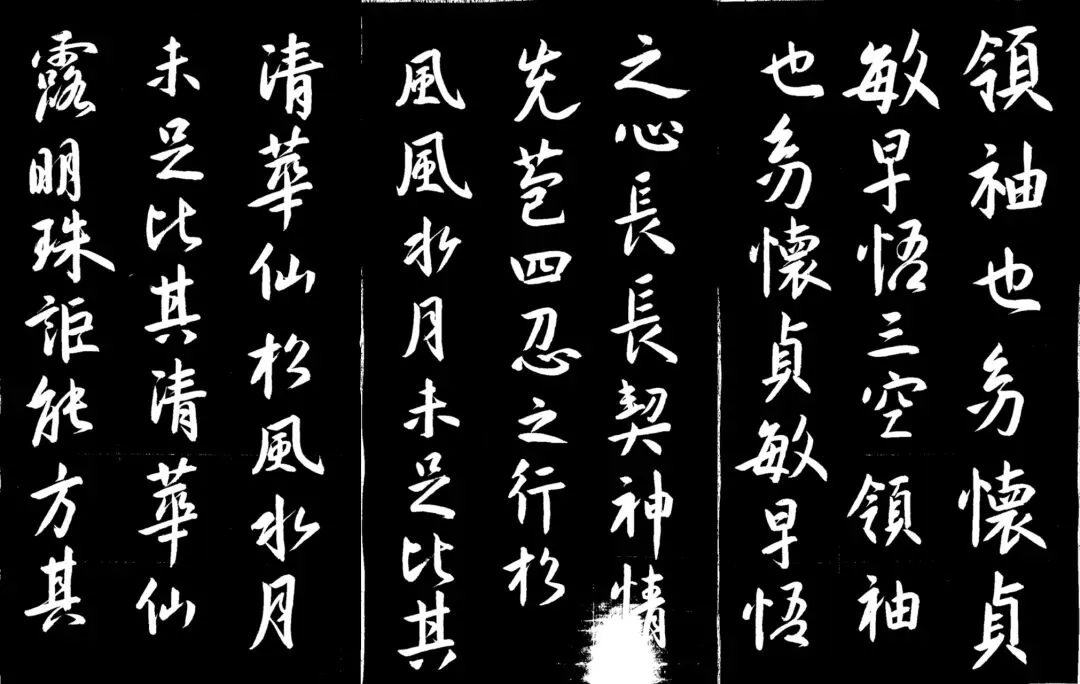 領袖也幼懷貞
敏早悟三空領袖
也幼懷貞敏早悟
之心長長契神情
先苞四忍之行松
風風水月未足比其
清華仙松風水月
未足比其清華仙
露明珠詎能方其